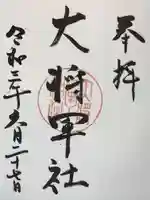 奉拝
大将軍社
令和三年五月二十七日